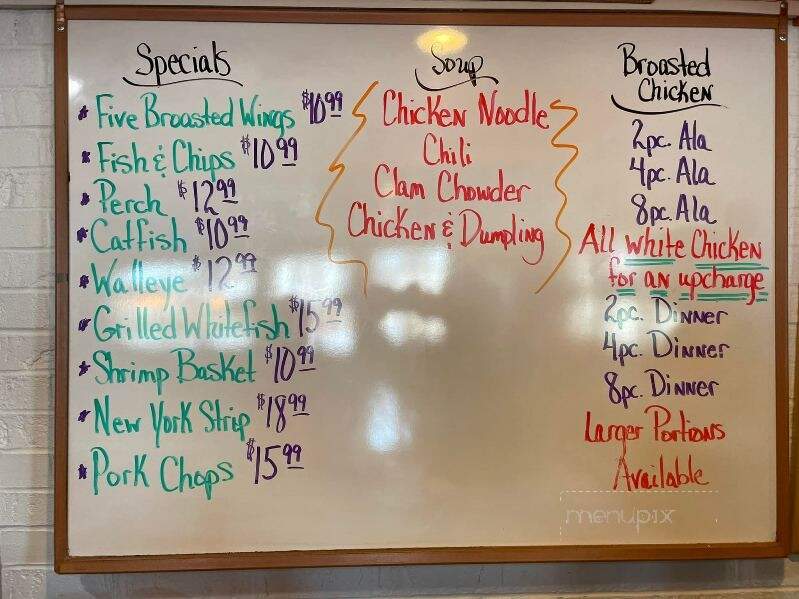 Specials
* Five Broasted Wings $10.99
* Fish & Chips $10.99
* Perch $12.99
* Catfish $10.99
* Walleye $12.99
* Grilled Whitefish $15.99
* Shrimp Basket $10.99
* New York Strip $18.99
* Pork Chops $15.99
Soup
Chicken Noodle
Chili
Clam Chowder
Chicken & Dumpling
Broasted
Chicken
2pc. Ala
4pc. Ala
8pc. Ala
All white Chicken
for an upcharge
2pc. Dinner
4pc. Dinner
8pc. Dinner
Larger Portions
Available
menupix